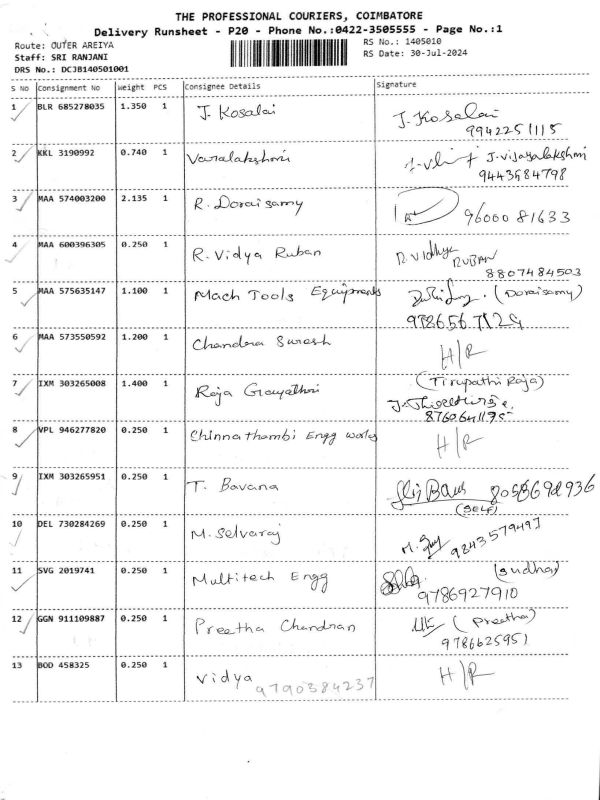 THE PROFESSIONAL COURIERS, COIMBATORE
Delivery Runsheet - P20 - Phone No.:0422-3505555 - Page No.:1
Route: OUTER AREIYA
RS No.: 1405010
Staff: SRI RANJANI
RS Date: 30-Jul-2024
DRS No.: DCJB140501001
S No Consignment No Weight PCS Consignee Details Signature
1 BLR 685278035 1.350 1 J. Kosalai J. Kosalai
9942251115
2 KKL 3190992 0.740 1 Varalakshmi J. vijayalakshmi
9443584798
3 MAA 574003200 2.135 1 R. Doraisamy 96000 81633
4 MAA 600396305 0.250 1 R. Vidya Ruban R. Vidhya
RUBAN
8807484503
5 MAA 575635147 1.100 1 Mach Tools Equipments (Doraisamy)
6 MAA 573550592 1.200 1 Chandra Suresh H/R
7 IXM 303265008 1.400 1 Raja Gayathri (Tirupathi Raja)
8 VPL 946277820 0.250 1 Chinnathambi Engg works H/R
9 IXM 303265951 0.250 1 T. Bavana
(SELF)
10 DEL 730284269 0.250 1 M. Selvaraj 9843579497
11 SVG 2019741 0.250 1 Multitech Engg (Sudha)
9786927910
12 GGN 911109887 0.250 1 Preetha Chandran (Preetha)
9786625951
13 BOD 458325 0.250 1 Vidya H/R
9790384237